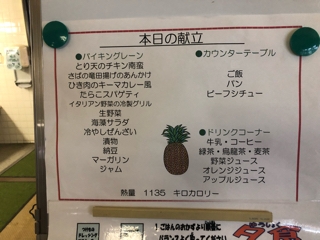 本日の献立
●バイキングレーン
とり天のチキン南蛮
さばの竜田揚げのあんかけ
ひき肉のキーマカレー風
たらこスパゲティ
イタリアン野菜の冷製グリル
生野菜
海藻サラダ
冷やしぜんざい
漬物
納豆
マーガリン
ジャム
●カウンターテーブル
ご飯
パン
ビーフシチュー
●ドリンクコーナー
牛乳・コーヒー
緑茶・烏龍茶・麦茶
野菜ジュース
オレンジジュース
アップルジュース
熱量 1135 キロカロリー
夕食